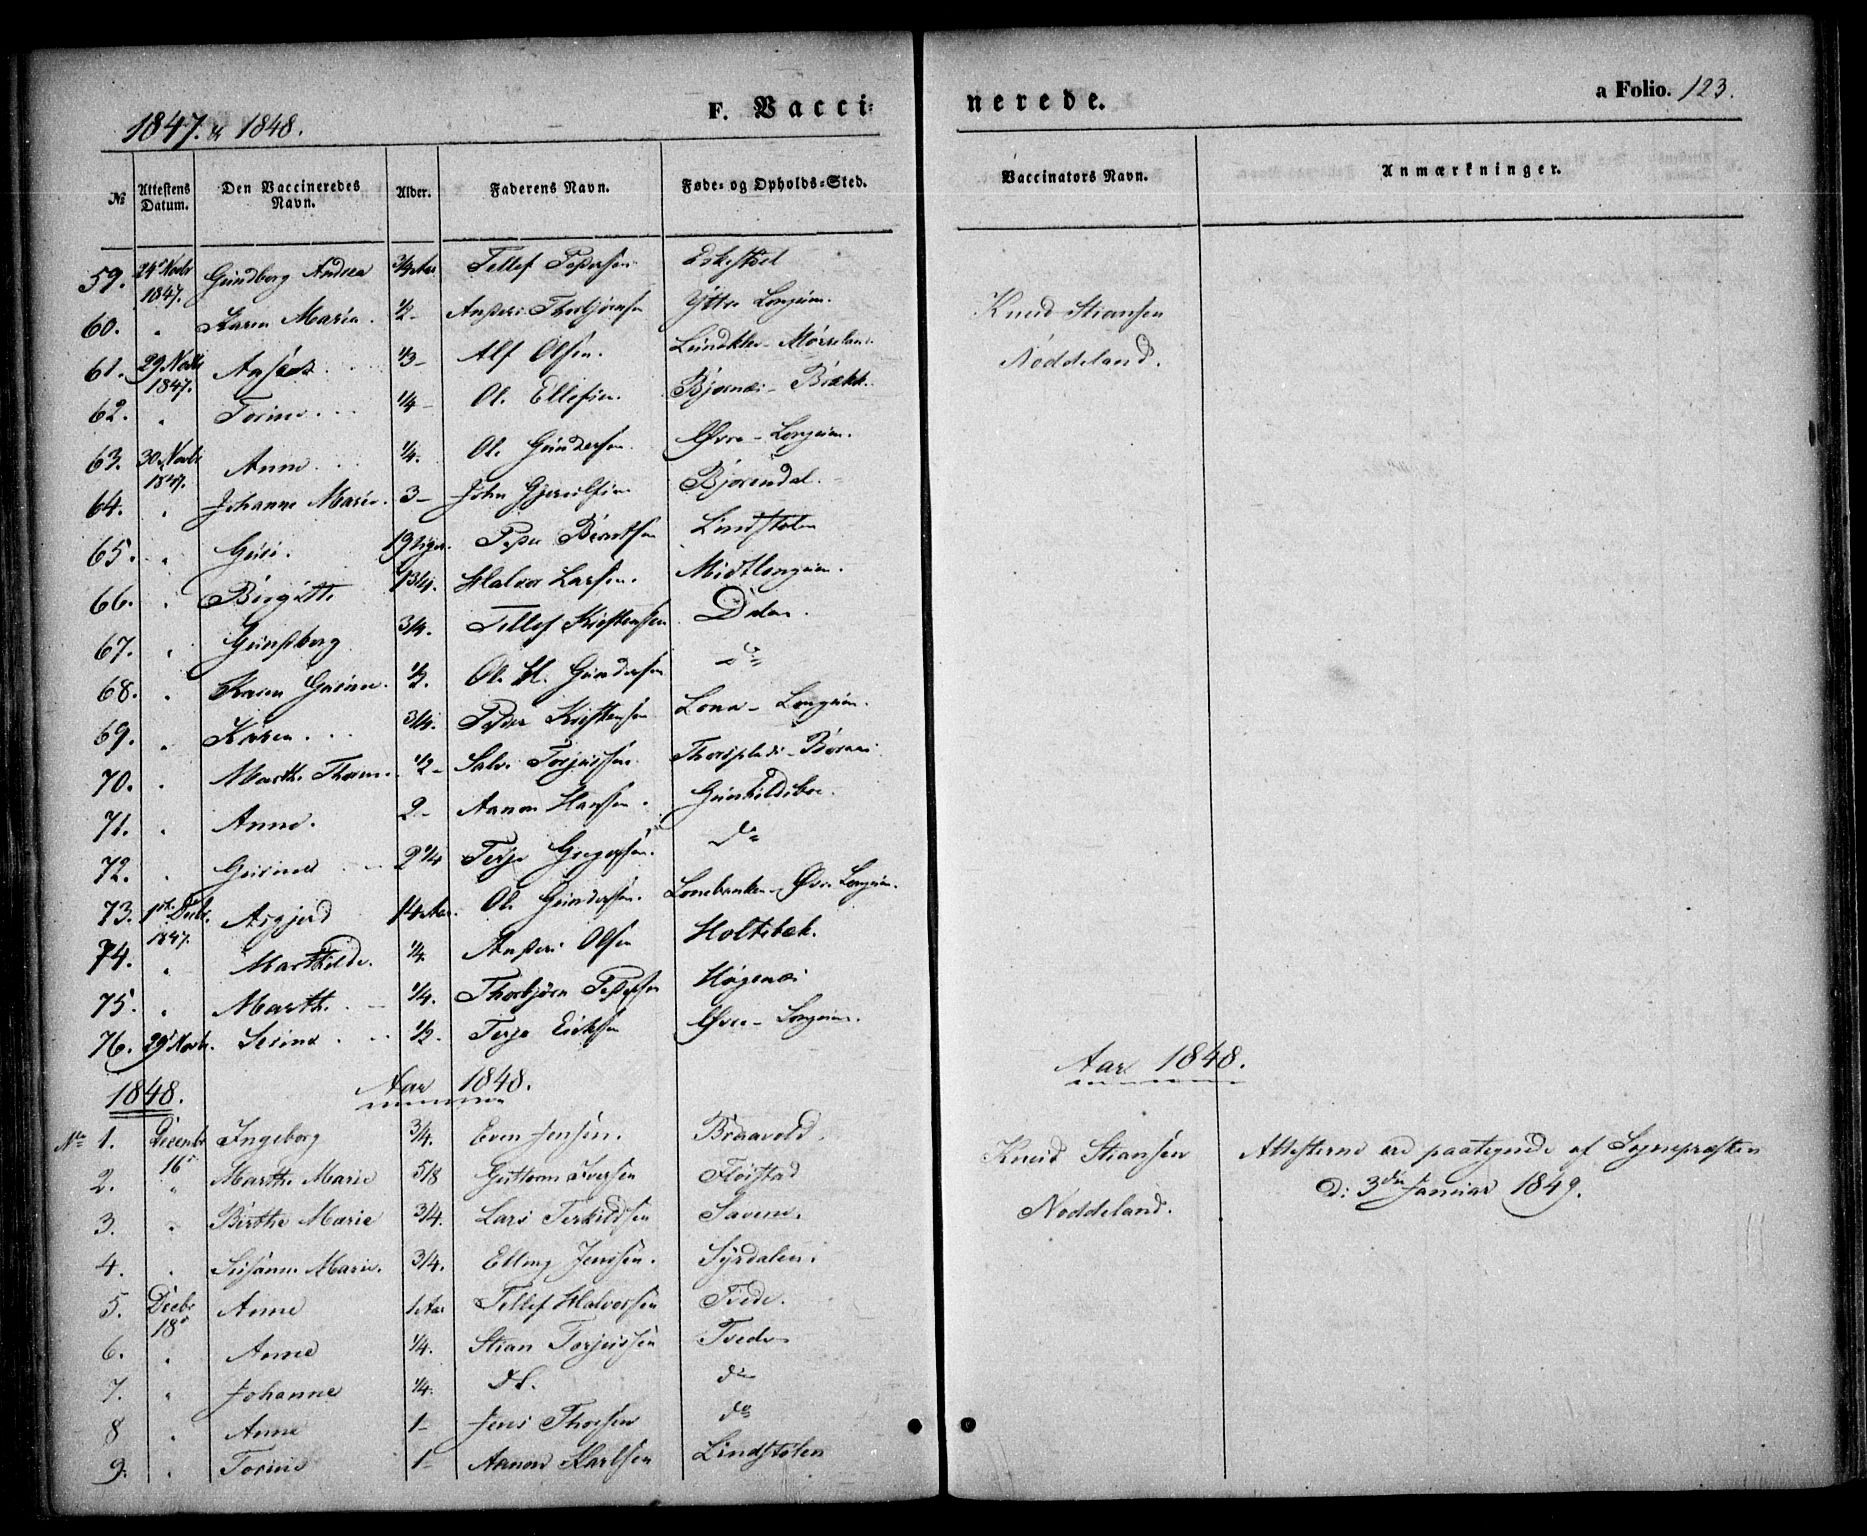 1847. & 1848.
F. Vacci-
nerede.
a Folio. 123.
No Attestens Datum. Den Vaccineredes Navn. Alder. Faderens Navn. Føde- og Opholds-Sted. Vaccinators Navn. Anmærkninger.
59. 24 Novbr 1847. Gundborg Andrea 3/4 Aar Tellef Pedersen Eskestøel
60. " Karen Maria. 1/2 - Anders Thorbjørnsen Yttre Longum. Knud Stiansen
61. 29 Novbr 1847. 1/3 - Alf Olsen. Nøddeland.
62. " Torine. 1/4 - Ole Ellefsen.
63. 30 Novbr 1847. Anne 1/4. Ole Gundersen Øvre - Longum.
64. " Johanne Marie. 3 - John Bjørendal.
65. " Guri. Peder Berntsen Lindstølen
66. " Birgitte 1 3/4. Halvor Larsen. Midtlongum.
67. " Gunborg 3/4. Tellef Kristensen Dalen.
68. " Karen Gurine. 1/2. Ole H. Gundersen do
69. " Karen 3/4. Peder Kristensen Lona - Longum.
70. " Marthe Thomine. 1/2 - Salve Torjussen
71. " Anne. 2 - Aanon Hansen. Gunhildsboe.
72. " Gurine 2 1/4 Terje Gregersen. do
73. 1ste Decbr. 1847. Asgjerd 14 Aar. Ole Gundersen. Lonebakken - Øvre Longum.
74. " Marthilde. 1/4. Anders Olsen Holtebæk.
75. " Marthe 1/4. Thorbjørn Pedersen Høgenæs
76. 29 Novbr. Serine 1/2. Terje Eriksen Øvre - Longum.
1848. Aar 1848. Aar 1848.
No 1. Decembr 16 Ingeborg 3/4. Even Jensen. Braavold. Knud Stiansen Attesterne ere paategnede af Sognepræsten
2. " Marthe Marie 5/8 Guttorm Iversen Fløistad d: 3die Januar 1849.
3. " Birthe Marie 3/4. Lars Terkildsen Savene. Nøddeland.
4. " Susanne Marie. 3/4. Elling Jenssen. Syrdalen.
5. Decbr 18 Anne 1 Aar Tellef Halvorsen Tvede.
6. " Anne 1/4. Stian Torjussen Tvede
7. " Johanne 1/4. do. do
8 " Anne 1 - Jens Thorsen do
9. " Torine 1 - Aanon Karlsen Lindstølen